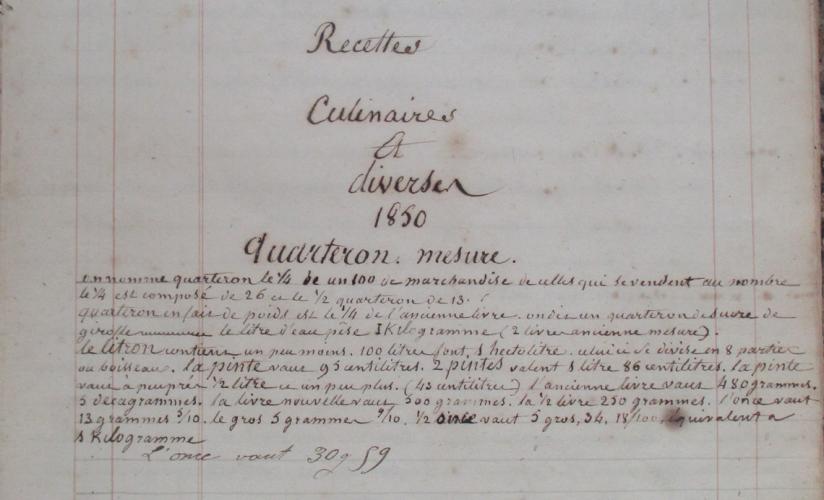 Recettes
Culinaires
Et
diverses
1850
Quarteron. mesure.
on nomme quarteron le 1/4 de un 100 de marchandise de celles qui se vendent au nombre
le 1/4 est composé de 26 et le 1/2 quarteron de 13.
quarteron en fait de poids est le 1/4 de l'ancienne livre. on dit un quarteron de sucre de
girofle le litre d'eau pèse 1 Kilogramme (2 livre ancienne mesure).
le litron contient un peu moins. 100 litres font 1 hectolitre. celui ci se divise en 8 parties
ou boisseau. la pinte vaut 95 centilitres. 2 pintes valent 1 litre 86 centilitres. la pinte
vaut à peu près 1/2 litre et un peu plus. (43 centilitres) l'ancienne livre vaut 480 grammes.
5 décagrammes. la livre nouvelle vaut 500 grammes. la 1/2 livre 250 grammes. l'once vaut
13 grammes 5/10. le gros 5 grammes 9/10. 1/2 once vaut 5 gros, 34, 18/100. équivalent a
1 Kilogramme
L'once vaut 30g 59